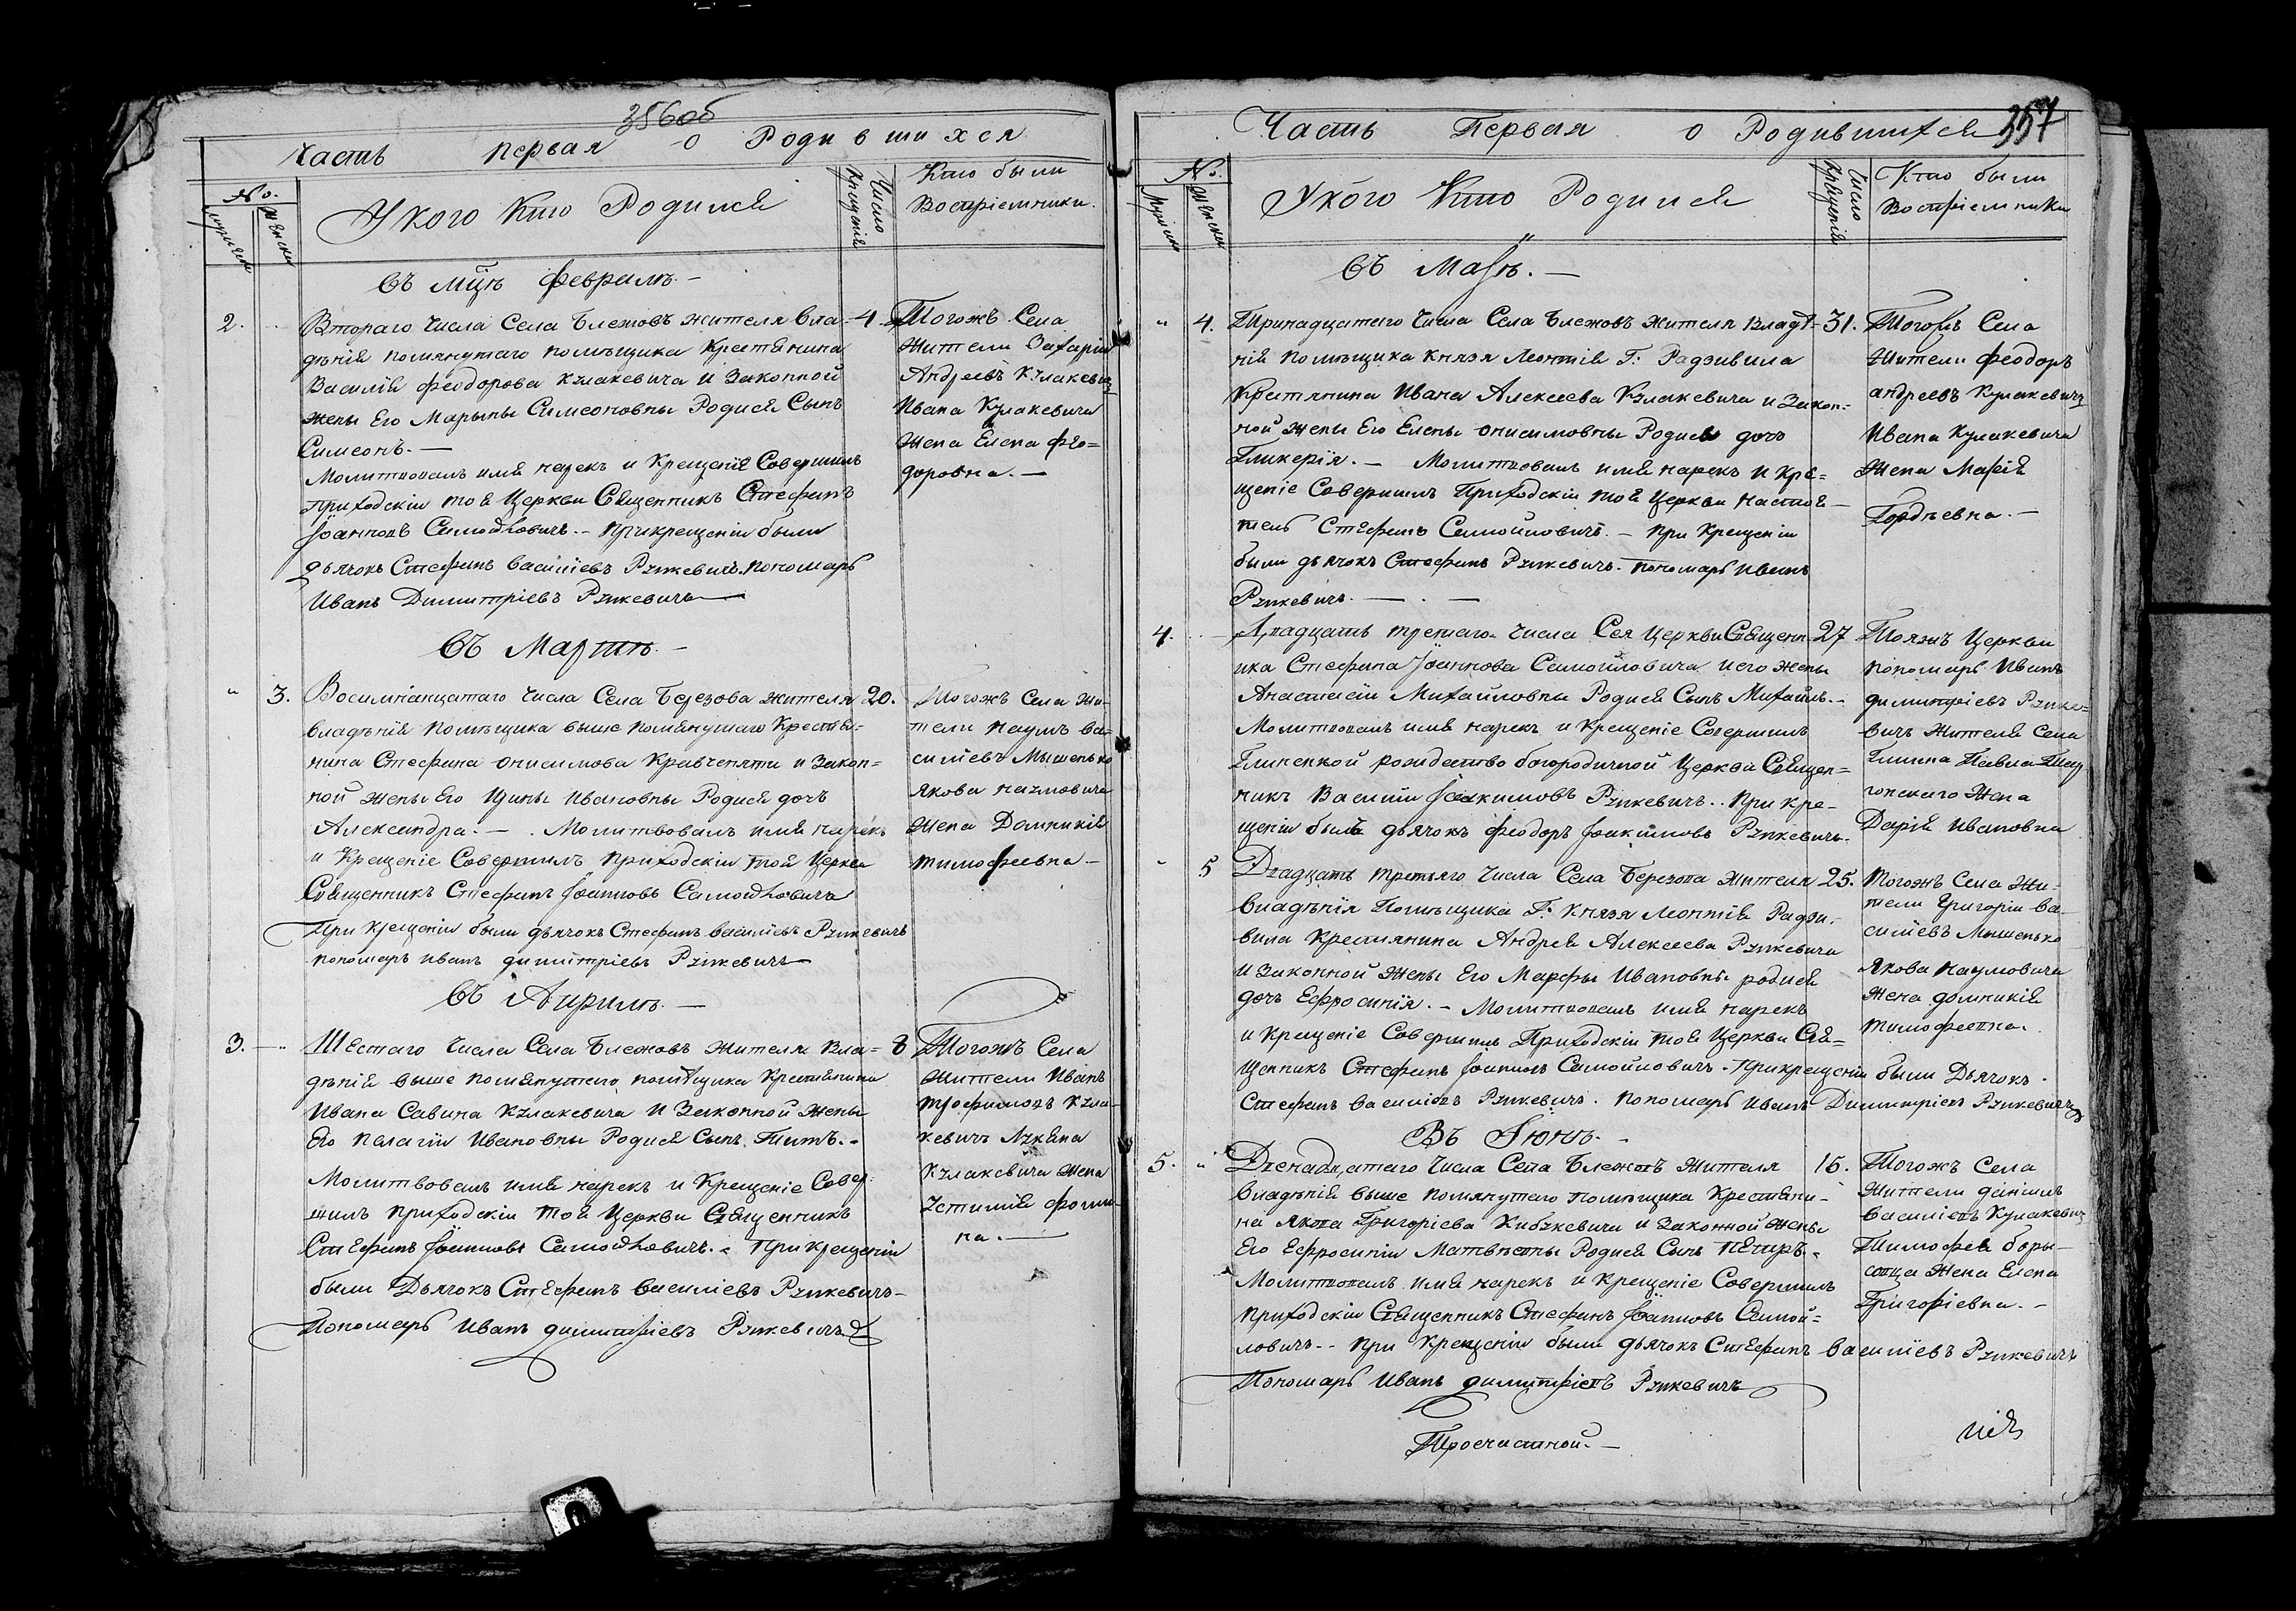 356об
Часть первая о Родившихся
№.
мужеска
женска
У кого кто Родился
Число
крещенія
Кто были
Воспріемники.
въ мцѣ Февралѣ. -
2.
Втораго числа Села Блежовъ жителя вла-
дѣнія помянутаго помѣщика Крестянина
Василія Феодорова Кулакевича и Законной
жены Его Марыны Симеоновны Родися Сынъ
Симеонъ. -
Молитвовалъ имя нарекъ и Крещеніе Совершилъ
приходскій тоя Церкви Священникъ Стефанъ
Іоанновъ Самойловичъ. - при крещеніи были
дьячокъ Стефанъ Василіевъ Рункевичъ. пономарь
Иванъ Димитріевъ Рункевичъ
4
Тогожъ Села
Жители Захарій
Андреевъ Кулакевичъ
Ивана Кулакевича
Жена Елена Фео=
доровна. -
въ Мартѣ. -
3.
Восимнанцатаго числа Села Березова жителя
владѣнія помѣщика выше помянутаго Крестья=
нина Стефана Онисимова Кравченяти и Закон=
ной жены Его Ивановны Родися дочъ
Александра. - Молитвовалъ имя нарекъ
и Крещеніе Совершилъ приходскій тоя Церкви
Священникъ Стефанъ Іоанновъ Самойловичъ
При крещеніи были дьячокъ Стефанъ Василіевъ Рункевичъ
пономаръ Иванъ Димитріевъ Рункевичъ
20.
Тогожъ Села Жи-
тели Наумъ Ва-
силіевъ Мышенько
Якова Наумовича
Жена Домникія
Тимофеевна -
въ Априлѣ. -
3.
Шестаго числа Села Блежовъ жителя вла=
дѣнія выше помянутаго помѣщика Крестянина
Ивана Савина Кулакевича и Законной жены
Его Палагіи Ивановны Родися Сынъ Титъ. -
Молитвовалъ имя нарекъ и Крещеніе Совер
шилъ приходскій тоя Церкви Священникъ
Стефанъ Іоанновъ Самойловичъ. - При крещеніи
были Дьячокъ Стефанъ Василіевъ Рункевичъ -
Пономарь Иванъ Димитріевъ Рункевичъ
8
Тогожъ Села
Жители Иванъ
Трофимовъ Кула-
кевичъ Лукяна
Кулакевича жена
Устинія Фоми-
на. -
357
Часть Первая о Родившихся
№.
мужеска
женска
У кого Кто Родился
Число
Крещенія
Кто были
Воспріемники
въ Маѣ. -
4.
Тринадцатаго числа Села Блежовъ жителя Владѣ-
нія помѣщика Князя Леонтія Г: Радзивила
Крестянина Ивана Алексеева Кулакевича и Закон=
ной жены Его Елены Онисимовны Родися дочъ
Гликерія. - Молитвовалъ имя нарекъ и Кре=
щеніе Совершилъ Приходскій тоя Церкви Настоя-
тель Стефанъ Самойловичъ. - при Крещеніи
были дьячокъ Стефанъ Рункевичъ. пономарь Иванъ
Рункевичъ. -
31.
Тогожъ Села
Жители Феодоръ
Андреевъ Кулакевичъ
Ивана Кулакевича
Жена Марія
Гордѣевна. -
4.
Двадцать третяго числа Сея Церкви Священ
ика Стефана Іоаннова Самойловича и его жены
Анастасіи Михайловны Родися Сынъ Михаилъ. -
Молитвовалъ имя нарекъ и Крещеніе Совершилъ
Глиненкой рождество богородичной Церкви Священ=
никъ Василій Іоакимовъ Рункевичъ. . При кре-
щеніи былъ дьячокъ Феодоръ Іоакимовъ Рункевичъ.
27
Тояжъ Церкви
пономарь Иванъ
Димитріевъ Рунке=
вичъ Жителя Села
Глинна Павла
Жена
Дарія Ивановна
5
Двадцать третьяго числа Села Березова жителя
владѣнія Помѣщика Г: Князя Леонтія Радзи-
вила Крестянина Андрея Алексеева Рункевича
и Законной жены Его Марфы Ивановны родися
дочъ Ефросинія. - Молитвовалъ имя нарекъ
и Крещеніе Совершилъ Приходскій тоя Церкви Свя=
щенникъ Стефанъ Іоанновъ Самойловичъ. При крещеніи были Дьячокъ
Стефанъ Василіевъ Рункевичъ. пономарь Иванъ Димитріевъ Рункевичъ
25.
Тогожъ Села Жи-
тели Григорій Ва-
силіевъ Мышенько
Якова Наумовича
Жена Домникія
Тимофеевна.
Въ Іюнѣ. -
5.
Двенадцатаго числа Села Блежовъ жителя
владѣнія выше помянутаго помѣщика Крестяни-
на Якова Григоріева Кибукевича и Законной жены
Его Ефросиніи Матвѣевны Родися Сынъ Петръ. -
Молитвовалъ имя нарекъ и Крещеніе Совершилъ
приходскій Священникъ Стефанъ Іоанновъ Самой=
ловичъ. - При Крещеніи были дьячокъ Стефанъ Василіевъ Рункевичъ
Пономарь Иванъ Димитріевъ Рункевичъ
15.
Тогожъ Села
Жители Даніилъ
Василіевъ Кулакевичъ
Тимофея Боры-
совца Жена Елена
Григоріевна. -